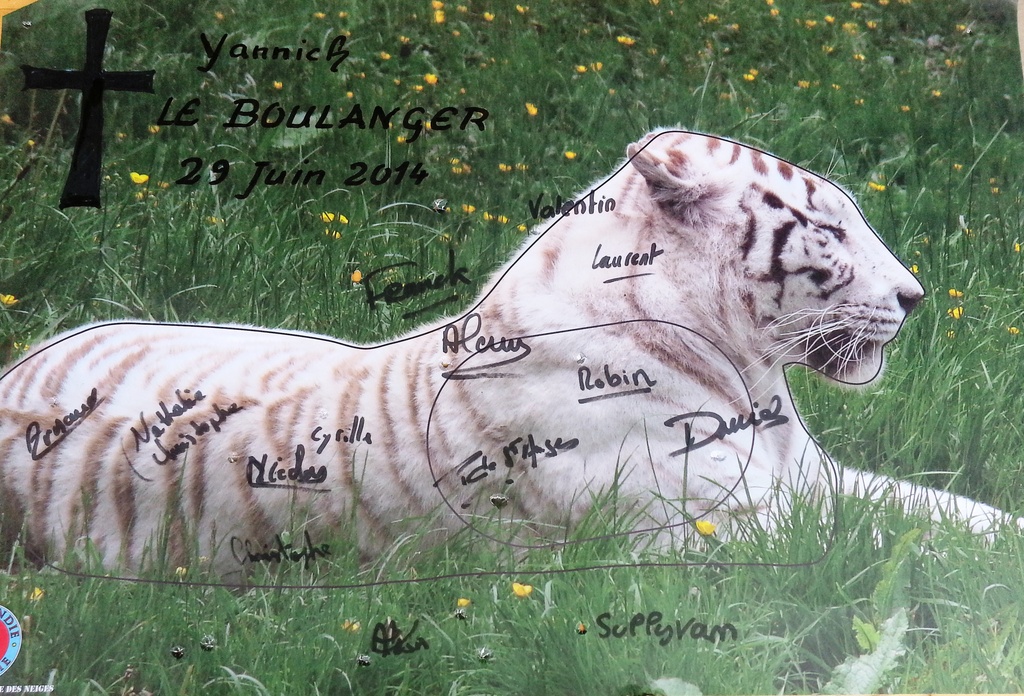 Yannick
LE BOULANGER
29 Juin 2014
Valentin
Laurent
Franck
Robin
Nathalie
Christophe
Cyrille
Nicolas
Daniel
Christophe
Alain
Suppyram
NDIE
E DES NEIGES